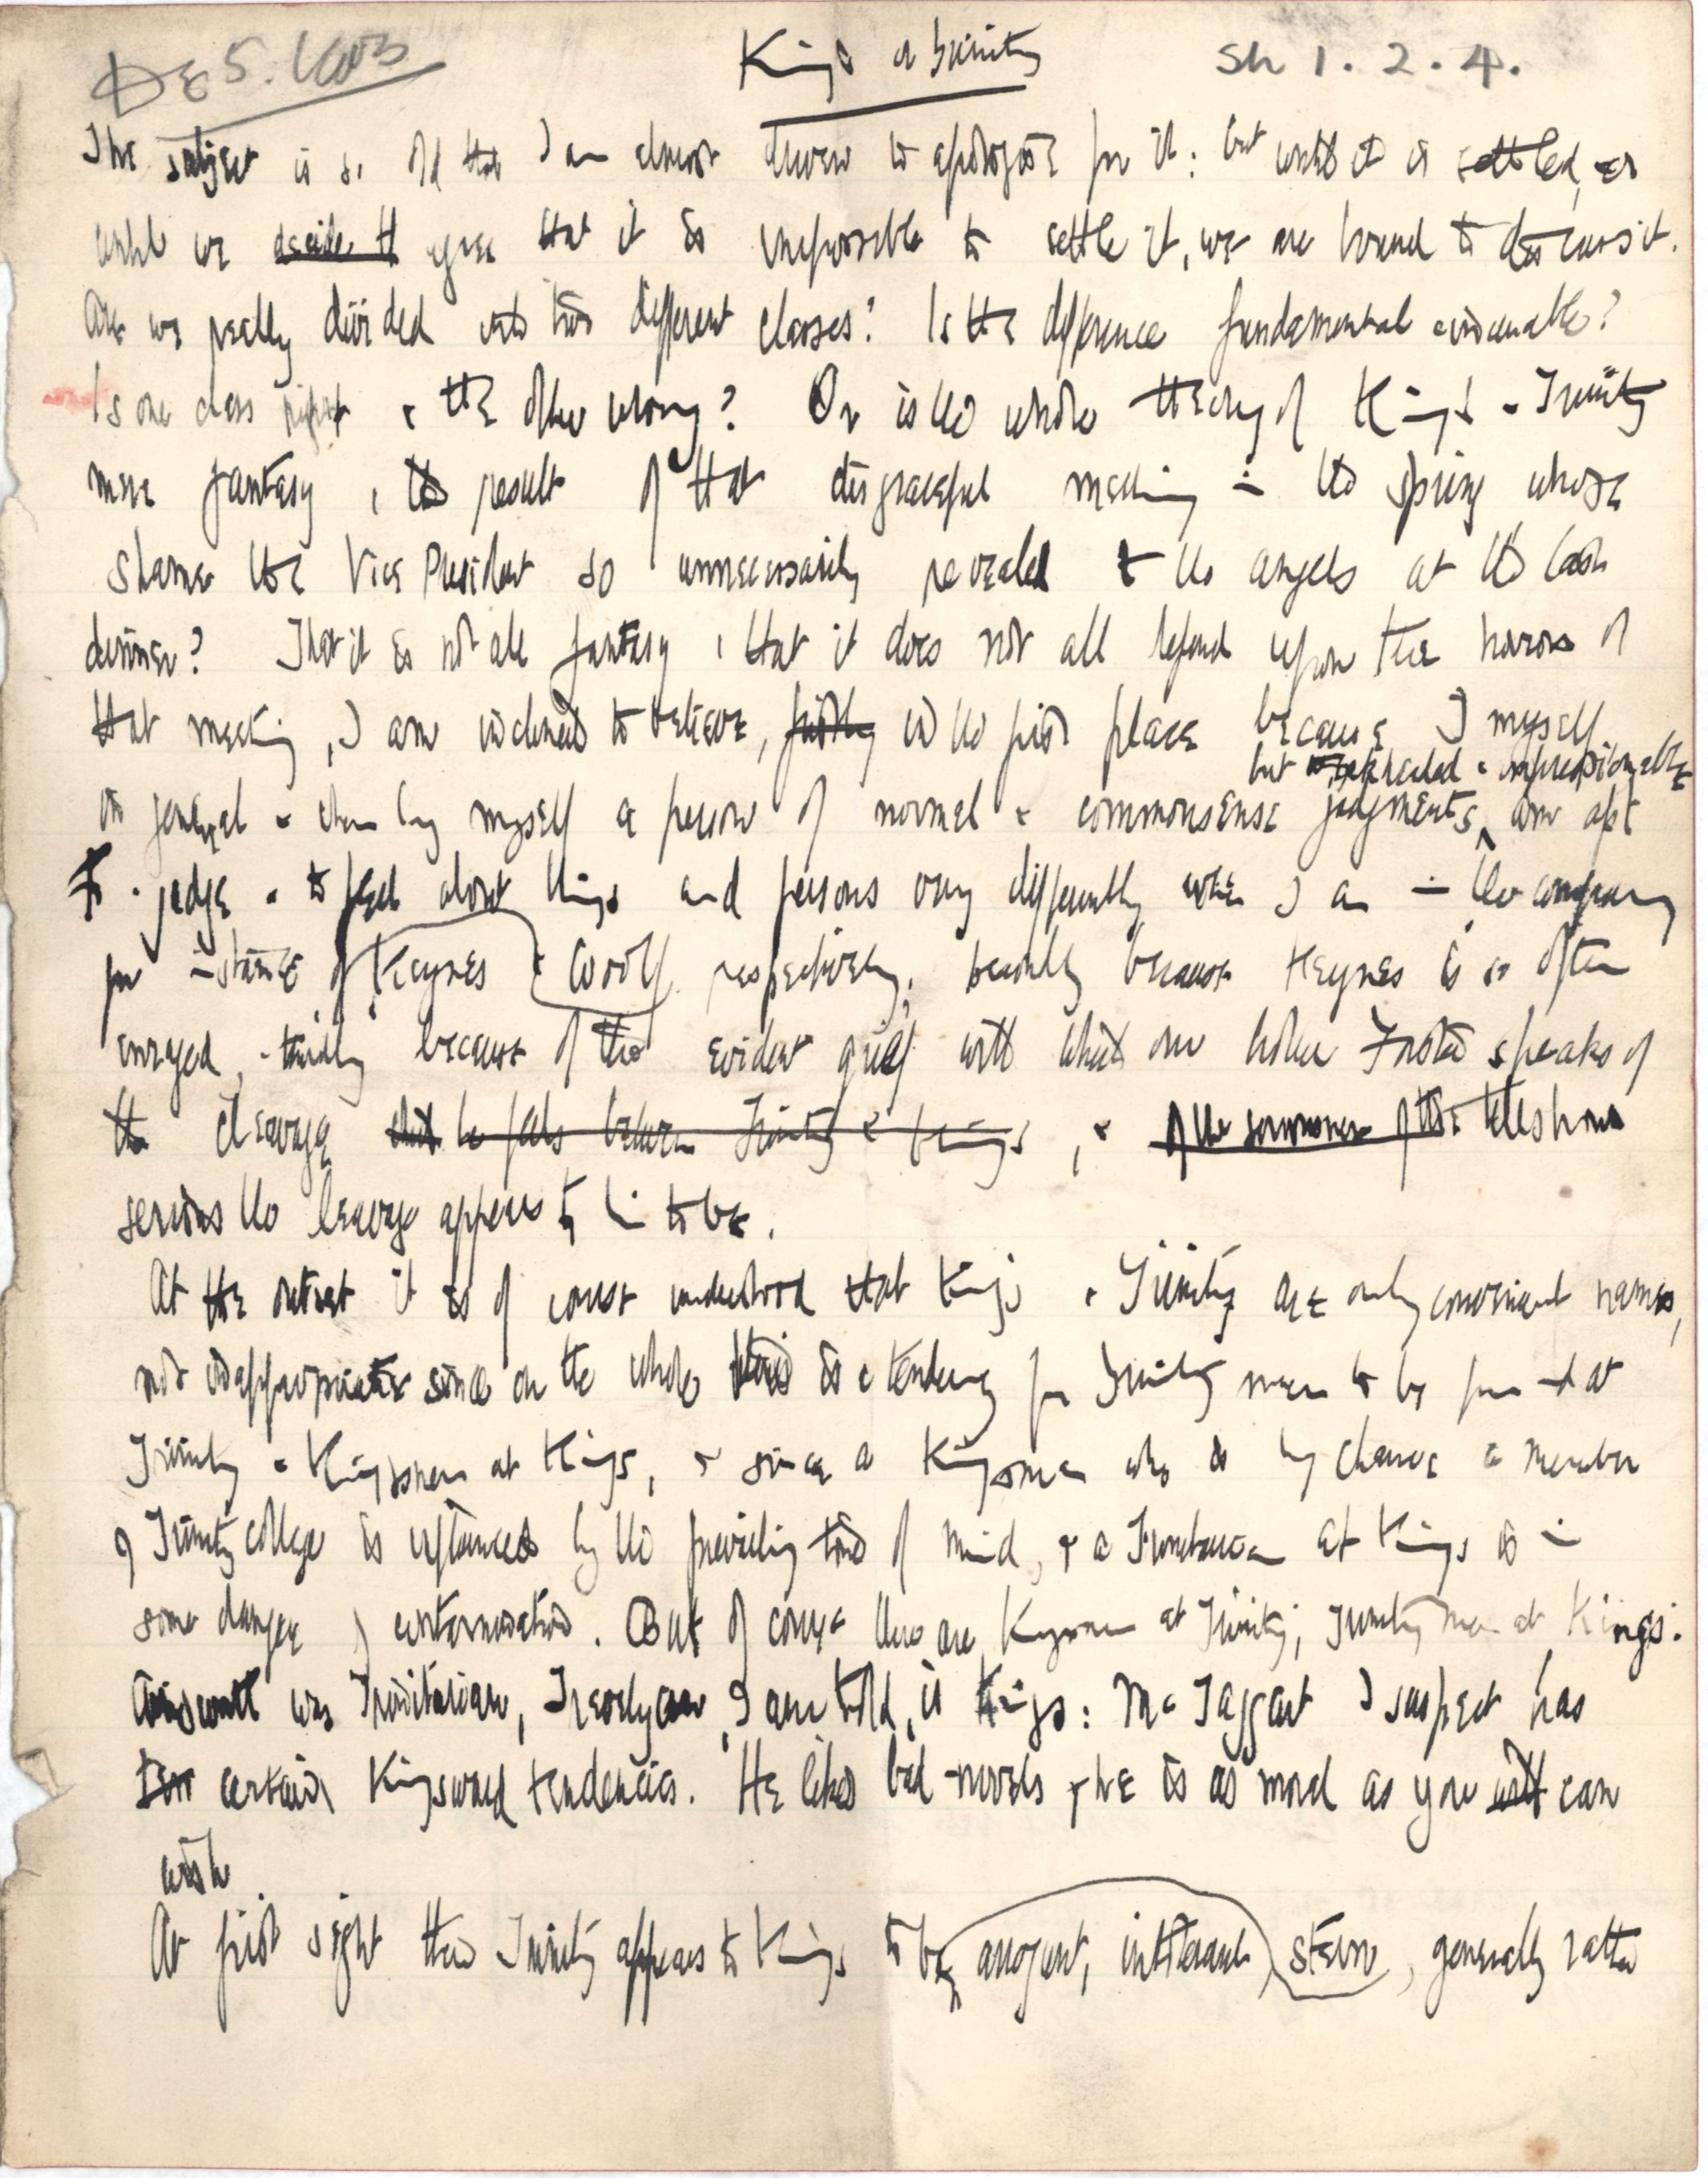 King's or Trinity
Sh 1. 2. 4.
The subject is so old that I am almost driven to apologise for it: but until it is settled, or
until we decide it agree that it is impossible to settle it, we are bound to discuss it.
Are we really divided into two different classes? Is the difference fundamental & incurable?
Is one class right & the other wrong? Or is the whole theory of Kings & Trinity
mere fantasy, the result of that disgraceful meeting in the spring whose
shame the Vice President so unnecessarily revealed to the angels at the last
dinner? That it is not all fantasy, that it does not all depend upon the horrors of
that meeting, I am inclined to believe, firstly in the first place because I myself
but & impressionable
in general & when by myself a person of normal & commonsense judgments, am apt
to judge & to feel about things and persons very differently when I am in the company
for instance of Keynes & Woolf respectively; secondly because Keynes is so often
enraged, thirdly because of the evident grief with which our brother Forster speaks of
the cleavage which he feels between Trinity & Kings, &
serious the cleavage appears to him to be.
At the outset it is of course understood that Kings & Trinity are only convenient names,
not inappropriate since on the whole there is a tendency for Trinity men to be found at
Trinity & Kingsmen at Kings, & since a Kingsman who is by chance a member
of Trinity college is influenced by the prevailing tone of mind, & a Trinitarian at Kings is in
some danger of contamination. But of course there are Kingsmen at Trinity; Trinity men at Kings:
Ainsworth was Trinitarian, Trevelyan, I am told, is Kings: McTaggart I suspect has
certain Kingsward tendencies. He likes bad novels & he is as moral as you will can
wish
At first sight then Trinity appears to Kings to be arrogant, intolerant, stern, generally rather